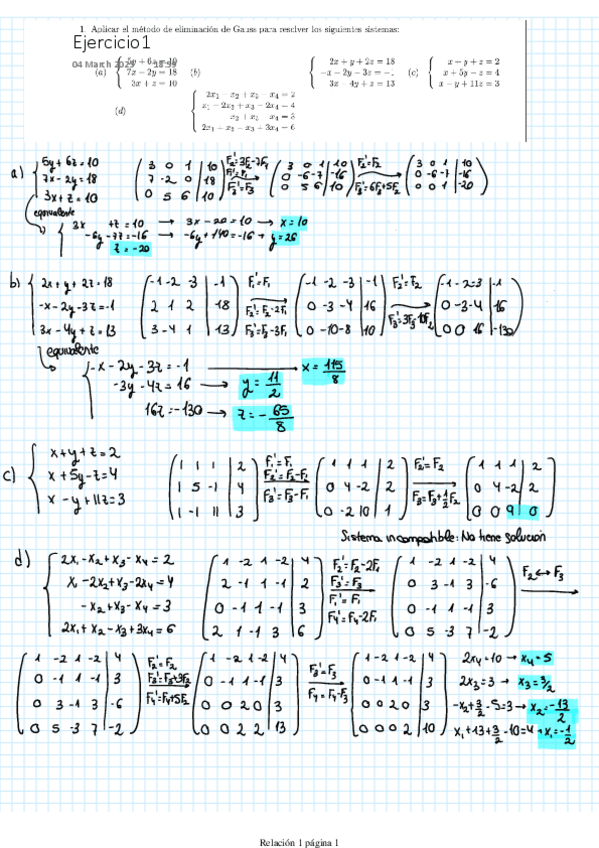 1. Aplicar el método de eliminación de Gauss para resolver los siguientes sistemas:
Ejercicio1
04 March 2021
(a) { 5y + 6z = 10
7x − 2y = 18
3x + z = 10
(b) { 2x + y + 2z = 18
−x − 2y − 3z = −1
3x − 4y + z = 13
(c) { x + y + z = 2
x + 5y − z = 4
x − y + 11z = 3
(d) { 2x₁ − x₂ + x₃ − x₄ = 2
x₁ − 2x₂ + x₃ − 2x₄ = 4
− x₂ + x₃ − x₄ = 3
2x₁ + x₂ − x₃ + 3x₄ = 6
a) { 5y + 6z = 10
7x − 2y = 18
3x + z = 10
( 3 0 1 | 10
7 -2 0 | 18
0 5 6 | 10 )
F₂'=3F₂-7F₁
F₁'=F₁
F₃'=F₃
( 3 0 1 | 10
0 -6 -7 | -16
0 5 6 | 10 )
F₂'=F₂
F₃'=6F₃+5F₂
( 3 0 1 | 10
0 -6 -7 | -16
0 0 1 | -20 )
equivalente
{ 3x +z = 10 → 3x - 20 = 10 → x = 10
-6y - 7z = -16 → -6y + 140 = -16 → y = 26
z = -20
b) { 2x + y + 2z = 18
-x - 2y - 3z = -1
3x - 4y + z = 13
( -1 -2 -3 | -1
2 1 2 | 18
3 -4 1 | 13 )
F₁'=F₁
( -1 -2 -3 | -1
0 -3 -4 | 16
0 -10 -8 | 10 )
F₂'=F₂
( -1 -2 -3 | -1
0 -3 -4 | 16
0 0 16 | -130 )
equivalente
{ -x - 2y - 3z = -1 → x = 115/8
-3y - 4z = 16 → y = 11/2
16z = -130 → z = -65/8
c) { x + y + z = 2
x + 5y - z = 4
x - y + 11z = 3
( 1 1 1 | 2
1 5 -1 | 4
1 -1 11 | 3 )
F₁'=F₁
F₂'=F₂-F₁
F₃'=F₃-F₁
( 1 1 1 | 2
0 4 -2 | 2
0 -2 10 | 1 )
F₂'=F₂
F₃=F₃+½F₂
( 1 1 1 | 2
0 4 -2 | 2
0 0 9 | 0 )
Sistema incompatible: No tiene solución
d) { 2x₁ - x₂ + x₃ - x₄ = 2
x₁ - 2x₂ + x₃ - 2x₄ = 4
- x₂ + x₃ - x₄ = 3
2x₁ + x₂ - x₃ + 3x₄ = 6
( 1 -2 1 -2 | 4
2 -1 1 -1 | 2
0 -1 1 -1 | 3
2 1 -1 3 | 6 )
F₂'=F₂-2F₁
F₃'=F₃
F₁'=F₁
F₄'=F₄-2F₁
( 1 -2 1 -2 | 4
0 3 -1 3 | -6
0 -1 1 -1 | 3
0 5 -3 7 | -2 )
F₂ ↔ F₃
( 1 -2 1 -2 | 4
0 -1 1 -1 | 3
0 3 -1 3 | -6
0 5 -3 7 | -2 )
F₂'=F₂
F₃'=F₃+3F₂
F₄'=F₄+5F₂
( 1 -2 1 -2 | 4
0 -1 1 -1 | 3
0 0 2 0 | 3
0 0 2 2 | 13 )
F₃'=F₃
F₄=F₄-F₃
( 1 -2 1 -2 | 4
0 -1 1 -1 | 3
0 0 2 0 | 3
0 0 0 2 | 10 )
2x₄ = 10 → x₄ = 5
2x₃ = 3 → x₃ = 3/2
-x₂ + 3/2 - 5 = 3 → x₂ = -13/2
x₁ + 13 + 3/2 - 10 = 4 → x₁ = -1/2
Relación 1 página 1